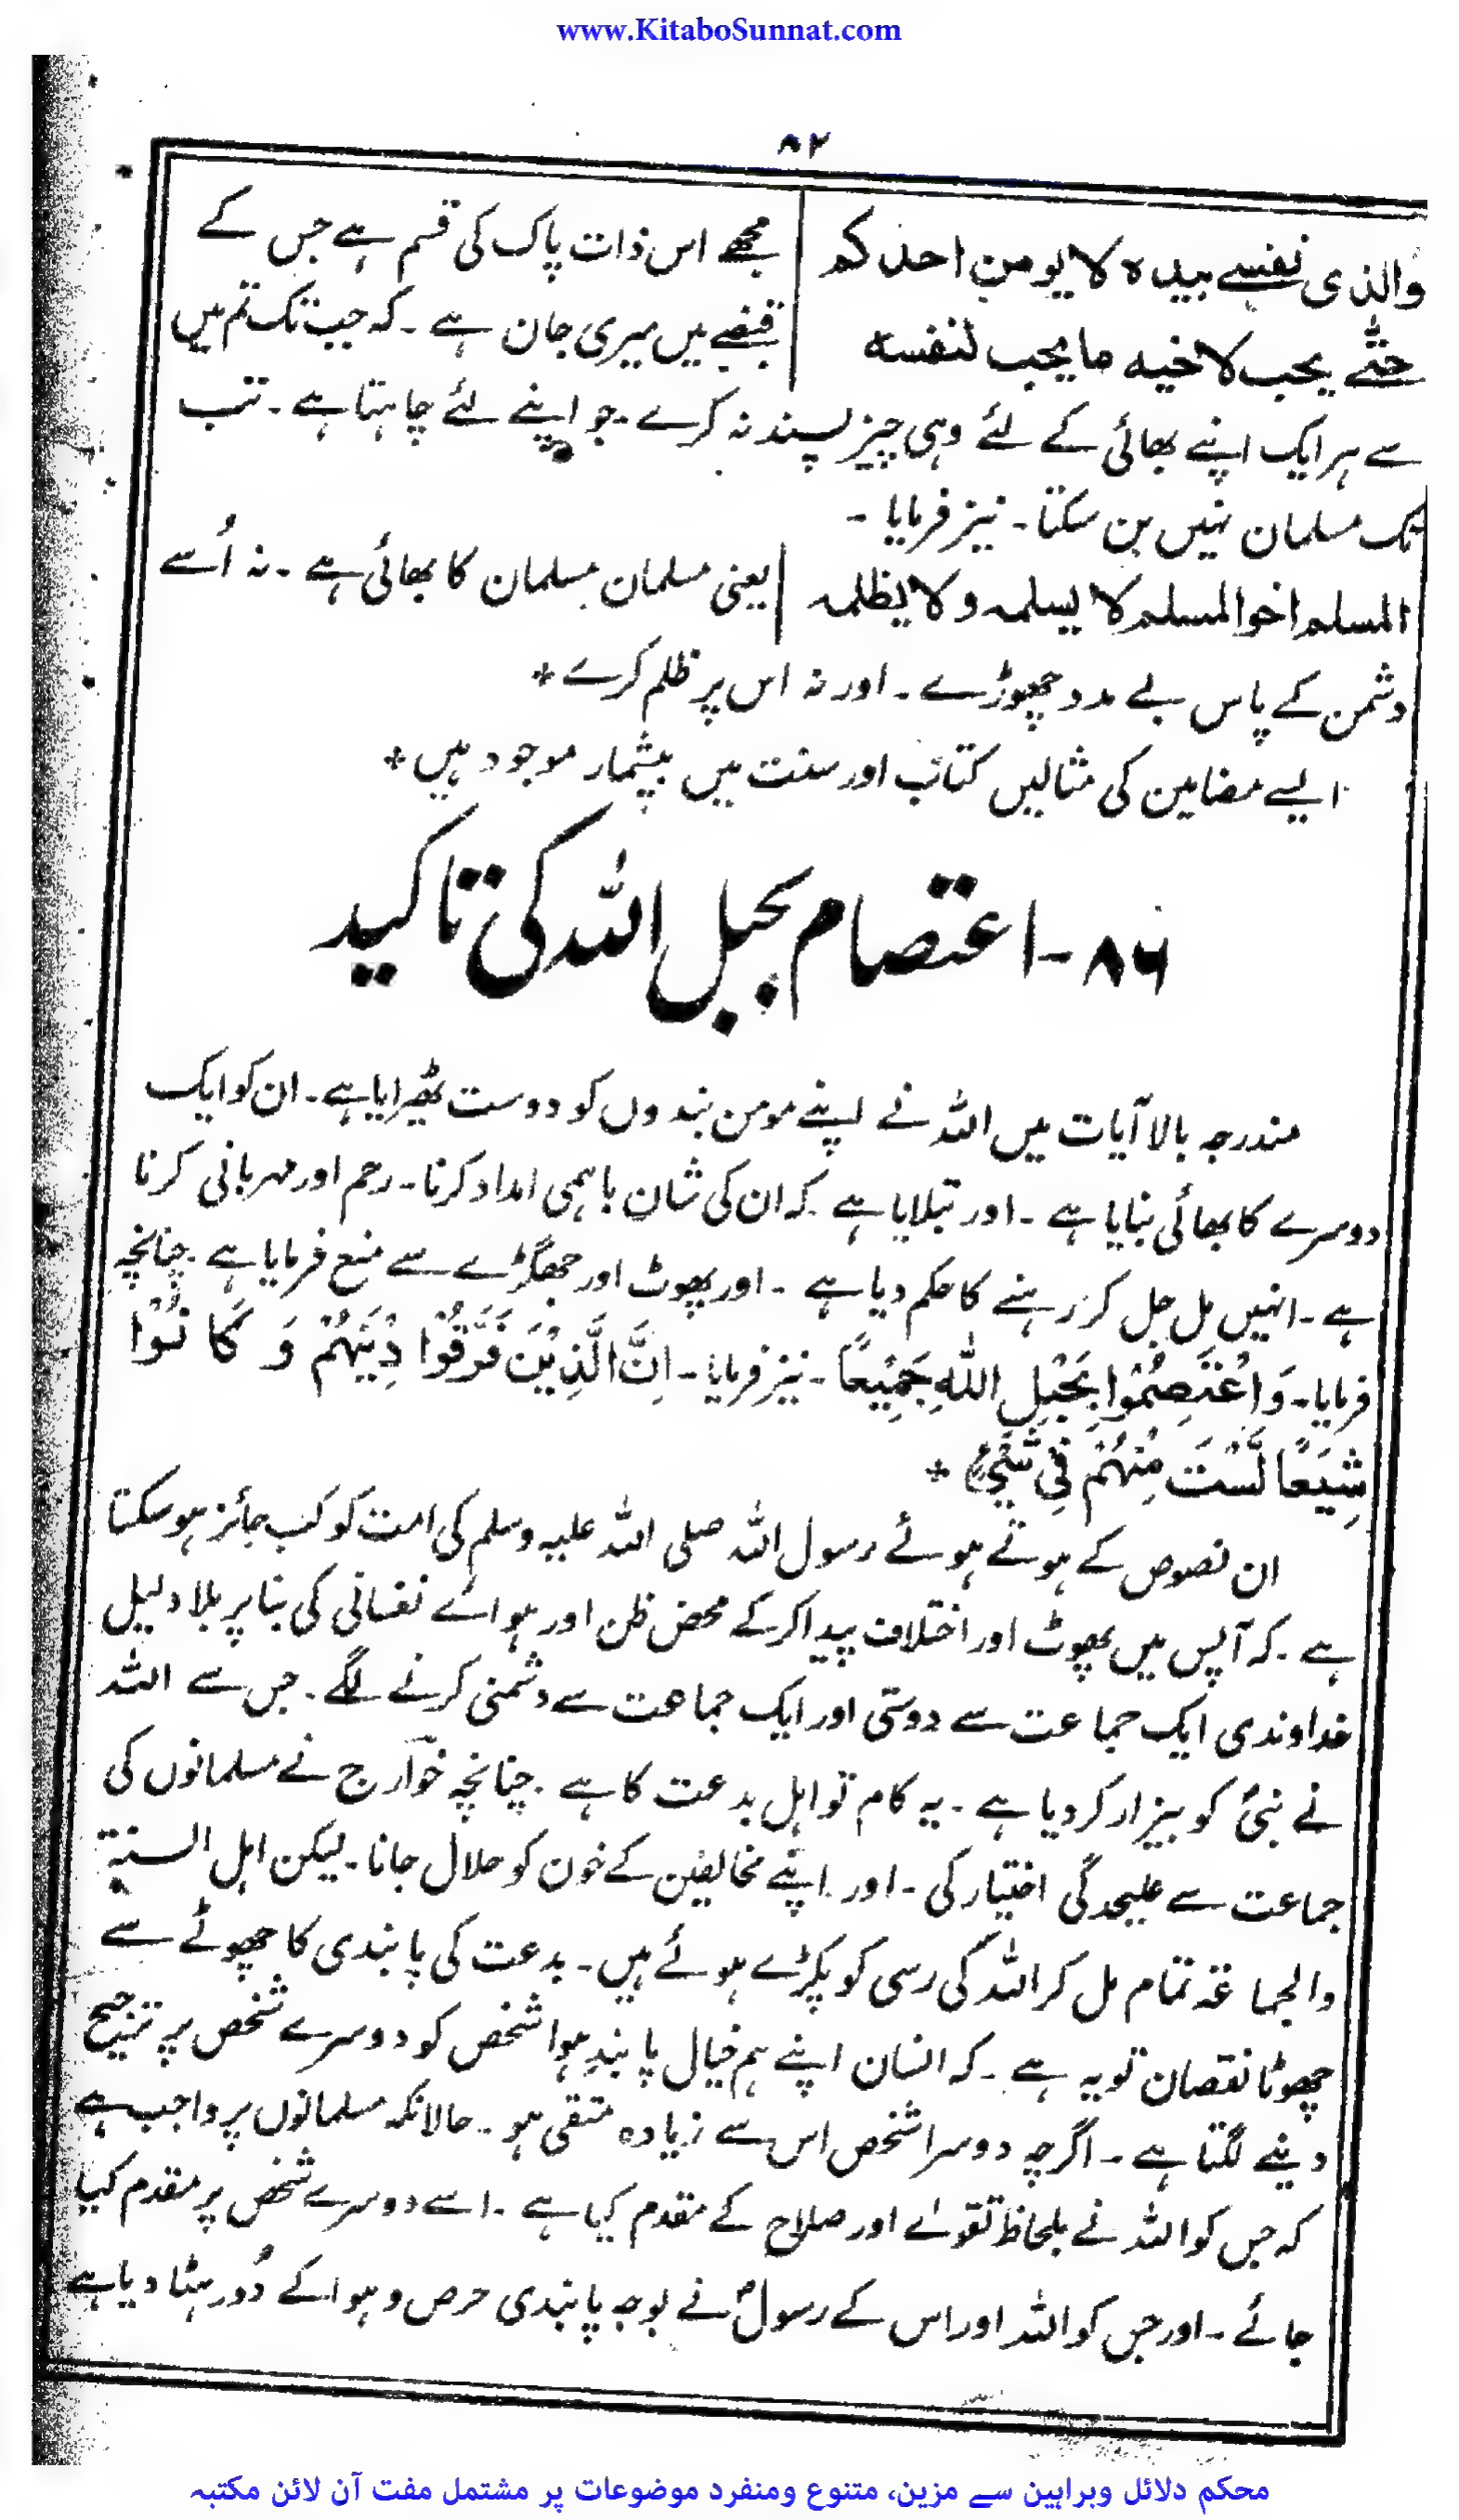 www.KitaboSunnat.com
۸۲
والذی نفسے بیدہ لا یومن احدکم | مجھے اس ذات پاک کی قسم ہے جس کے
حتّٰے یحب لاخیہ مایحب لنفسہ | قبضے میں میری جان ہے ۔ کہ جب تک تم میں
سے ہر ایک اپنے بھائی کے لئے وہی چیز پسند نہ کرے ۔ جو اپنے لئے چاہتا ہے ۔ تب
تک مسلمان نہیں بن سکتا ۔ نیز فرمایا ۔
المسلم اخوالمسلم لا یسلمہ ولا یظلمہ | یعنی مسلمان مسلمان کا بھائی ہے ۔ نہ اُسے
دشمن کے پاس بے مدد چھوڑے ۔ اور نہ اس پر ظلم کرے *
ایسے مضامین کی مثالیں کتاب اور سنت میں بیشمار موجود ہیں *
۸۶ - اعتصام بحبل اللہ کی تاکید
مندرجہ بالا آیات میں اللہ نے اپنے مومن بندوں کو دوست ٹھیرایا ہے ۔ ان کو ایک
دوسرے کا بھائی بنایا ہے ۔ اور بتلایا ہے کہ ان کی شان باہمی امداد کرنا ۔ رحم اور مہربانی کرنا
ہے ۔ انہیں مل جل کر رہنے کا حکم دیا ہے ۔ اور پھوٹ اور جھگڑے سے منع فرمایا ہے ۔ چنانچہ
فرمایا ۔ وَاعْتَصِمُوْا بِحَبْلِ اللّٰهِ جَمِيْعًا ۔ نیز فرمایا ۔ اِنَّ الَّذِيْنَ فَرَّقُوْا دِيْنَهُمْ وَ كَانُوْا
شِيَعًا لَّسْتَ مِنْهُمْ فِيْ شَيْءٍ *
ان نصوص کے ہوتے ہوئے رسول اللہ صلی اللہ علیہ وسلم کی امت کو کب جائز ہوسکتا
ہے ۔ کہ آپس میں پھوٹ اور اختلاف پیدا کرکے محض ظن اور ہوائے نفسانی کی بنا پر بلا دلیل
خداوندی ایک جماعت سے دوستی اور ایک جماعت سے دشمنی کرنے لگے ۔ جس سے اللہ
نے نبیؐ کو بیزار کردیا ہے ۔ یہ کام تو اہل بدعت کا ہے ۔ چنانچہ خوارج نے مسلمانوں کی
جماعت سے علیحدگی اختیار کی ۔ اور اپنے مخالفین کے خون کو حلال جانا ۔ لیکن اہل السنۃ
والجماعۃ تمام مل کر اللہ کی رسی کو پکڑے ہوئے ہیں ۔ بدعت کی پابندی کا چھوٹے سے
چھوٹا نقصان تو یہ ہے ۔ کہ انسان اپنے ہم خیال پابندِ ہوا شخص کو دوسرے شخص پر ترجیح
دینے لگتا ہے ۔ اگرچہ دوسرا شخص اس سے زیادہ متقی ہو ۔ حالانکہ مسلمانوں پر واجب ہے
کہ جس کو اللہ نے بلحاظ تقوےٰ اور صلاح کے مقدم کیا ہے ۔ اسے دوسرے شخص پر مقدم کیا
جائے ۔ اور جس کو اللہ اور اس کے رسولؐ نے بوجہ پابندی حرص و ہوا کے دُور ہٹا دیا ہے
محکم دلائل وبراہین سے مزین، متنوع ومنفرد موضوعات پر مشتمل مفت آن لائن مکتبہ